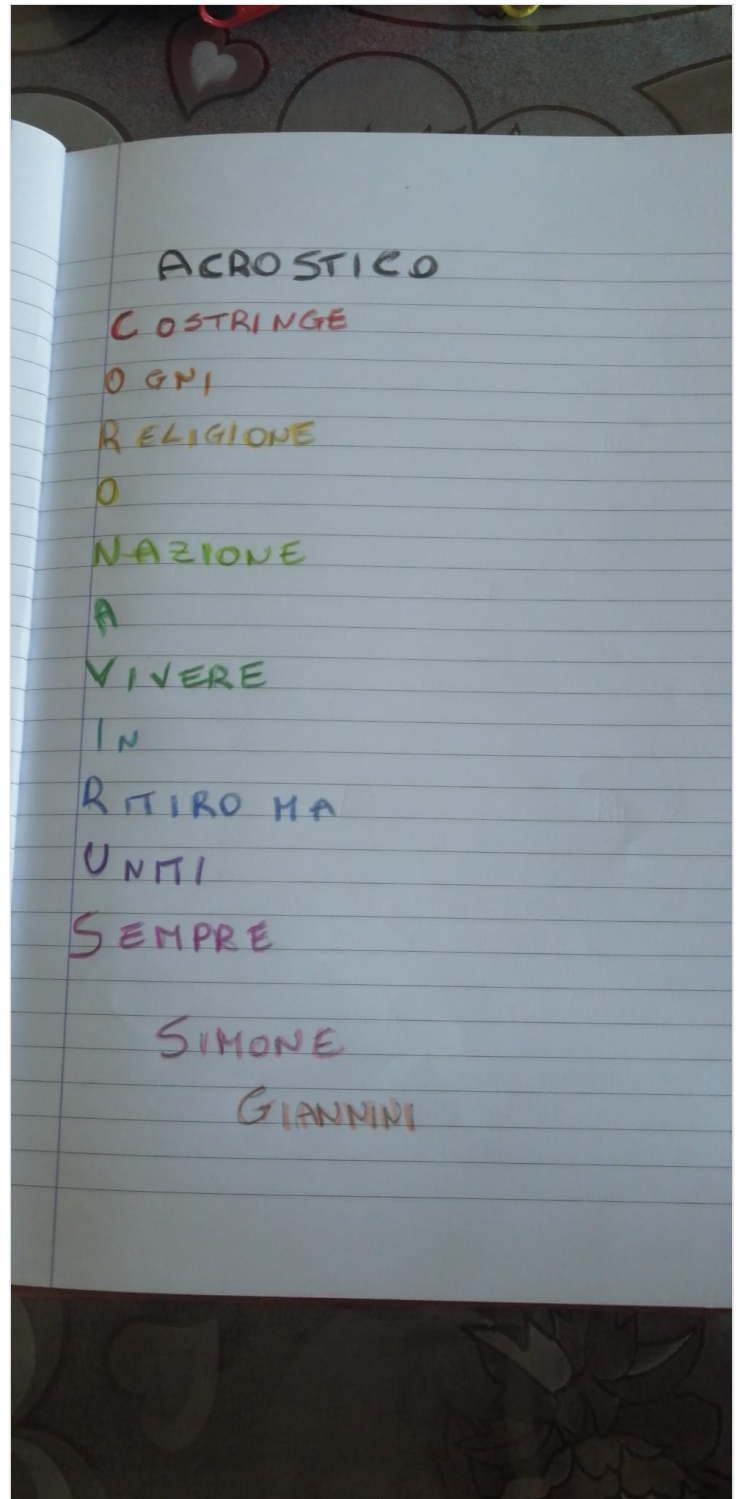 ACROSTICO
COSTRINGE
OGNI
RELIGIONE
O
NAZIONE
A
VIVERE
IN
RITIRO MA
UNITI
SEMPRE
SIMONE
GIANNINI